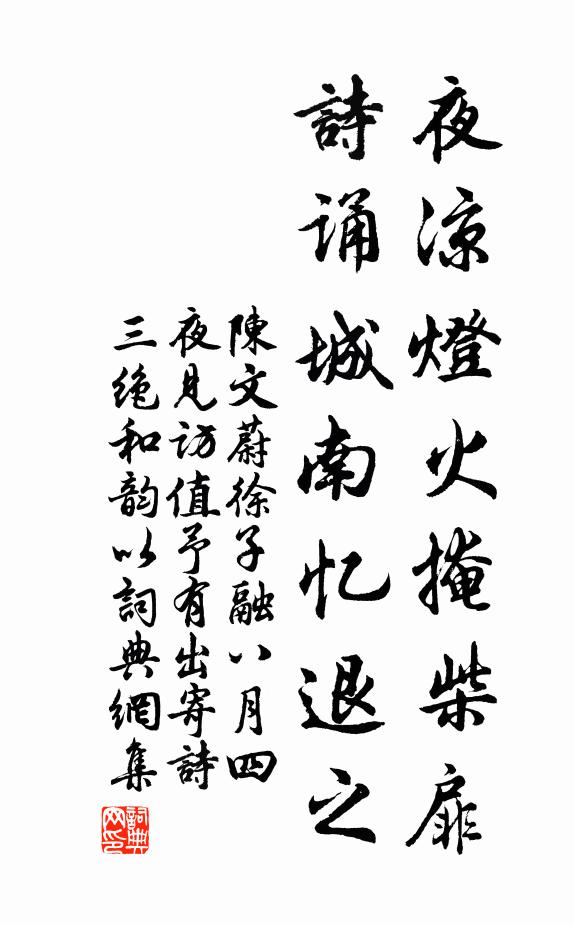 夜凉燈火掩柴扉
詩诵城南忆退之
陳文蔚徐子融八月四
夜見访值予有出寄詩
三绝和韵以詞典網集
詞典网印